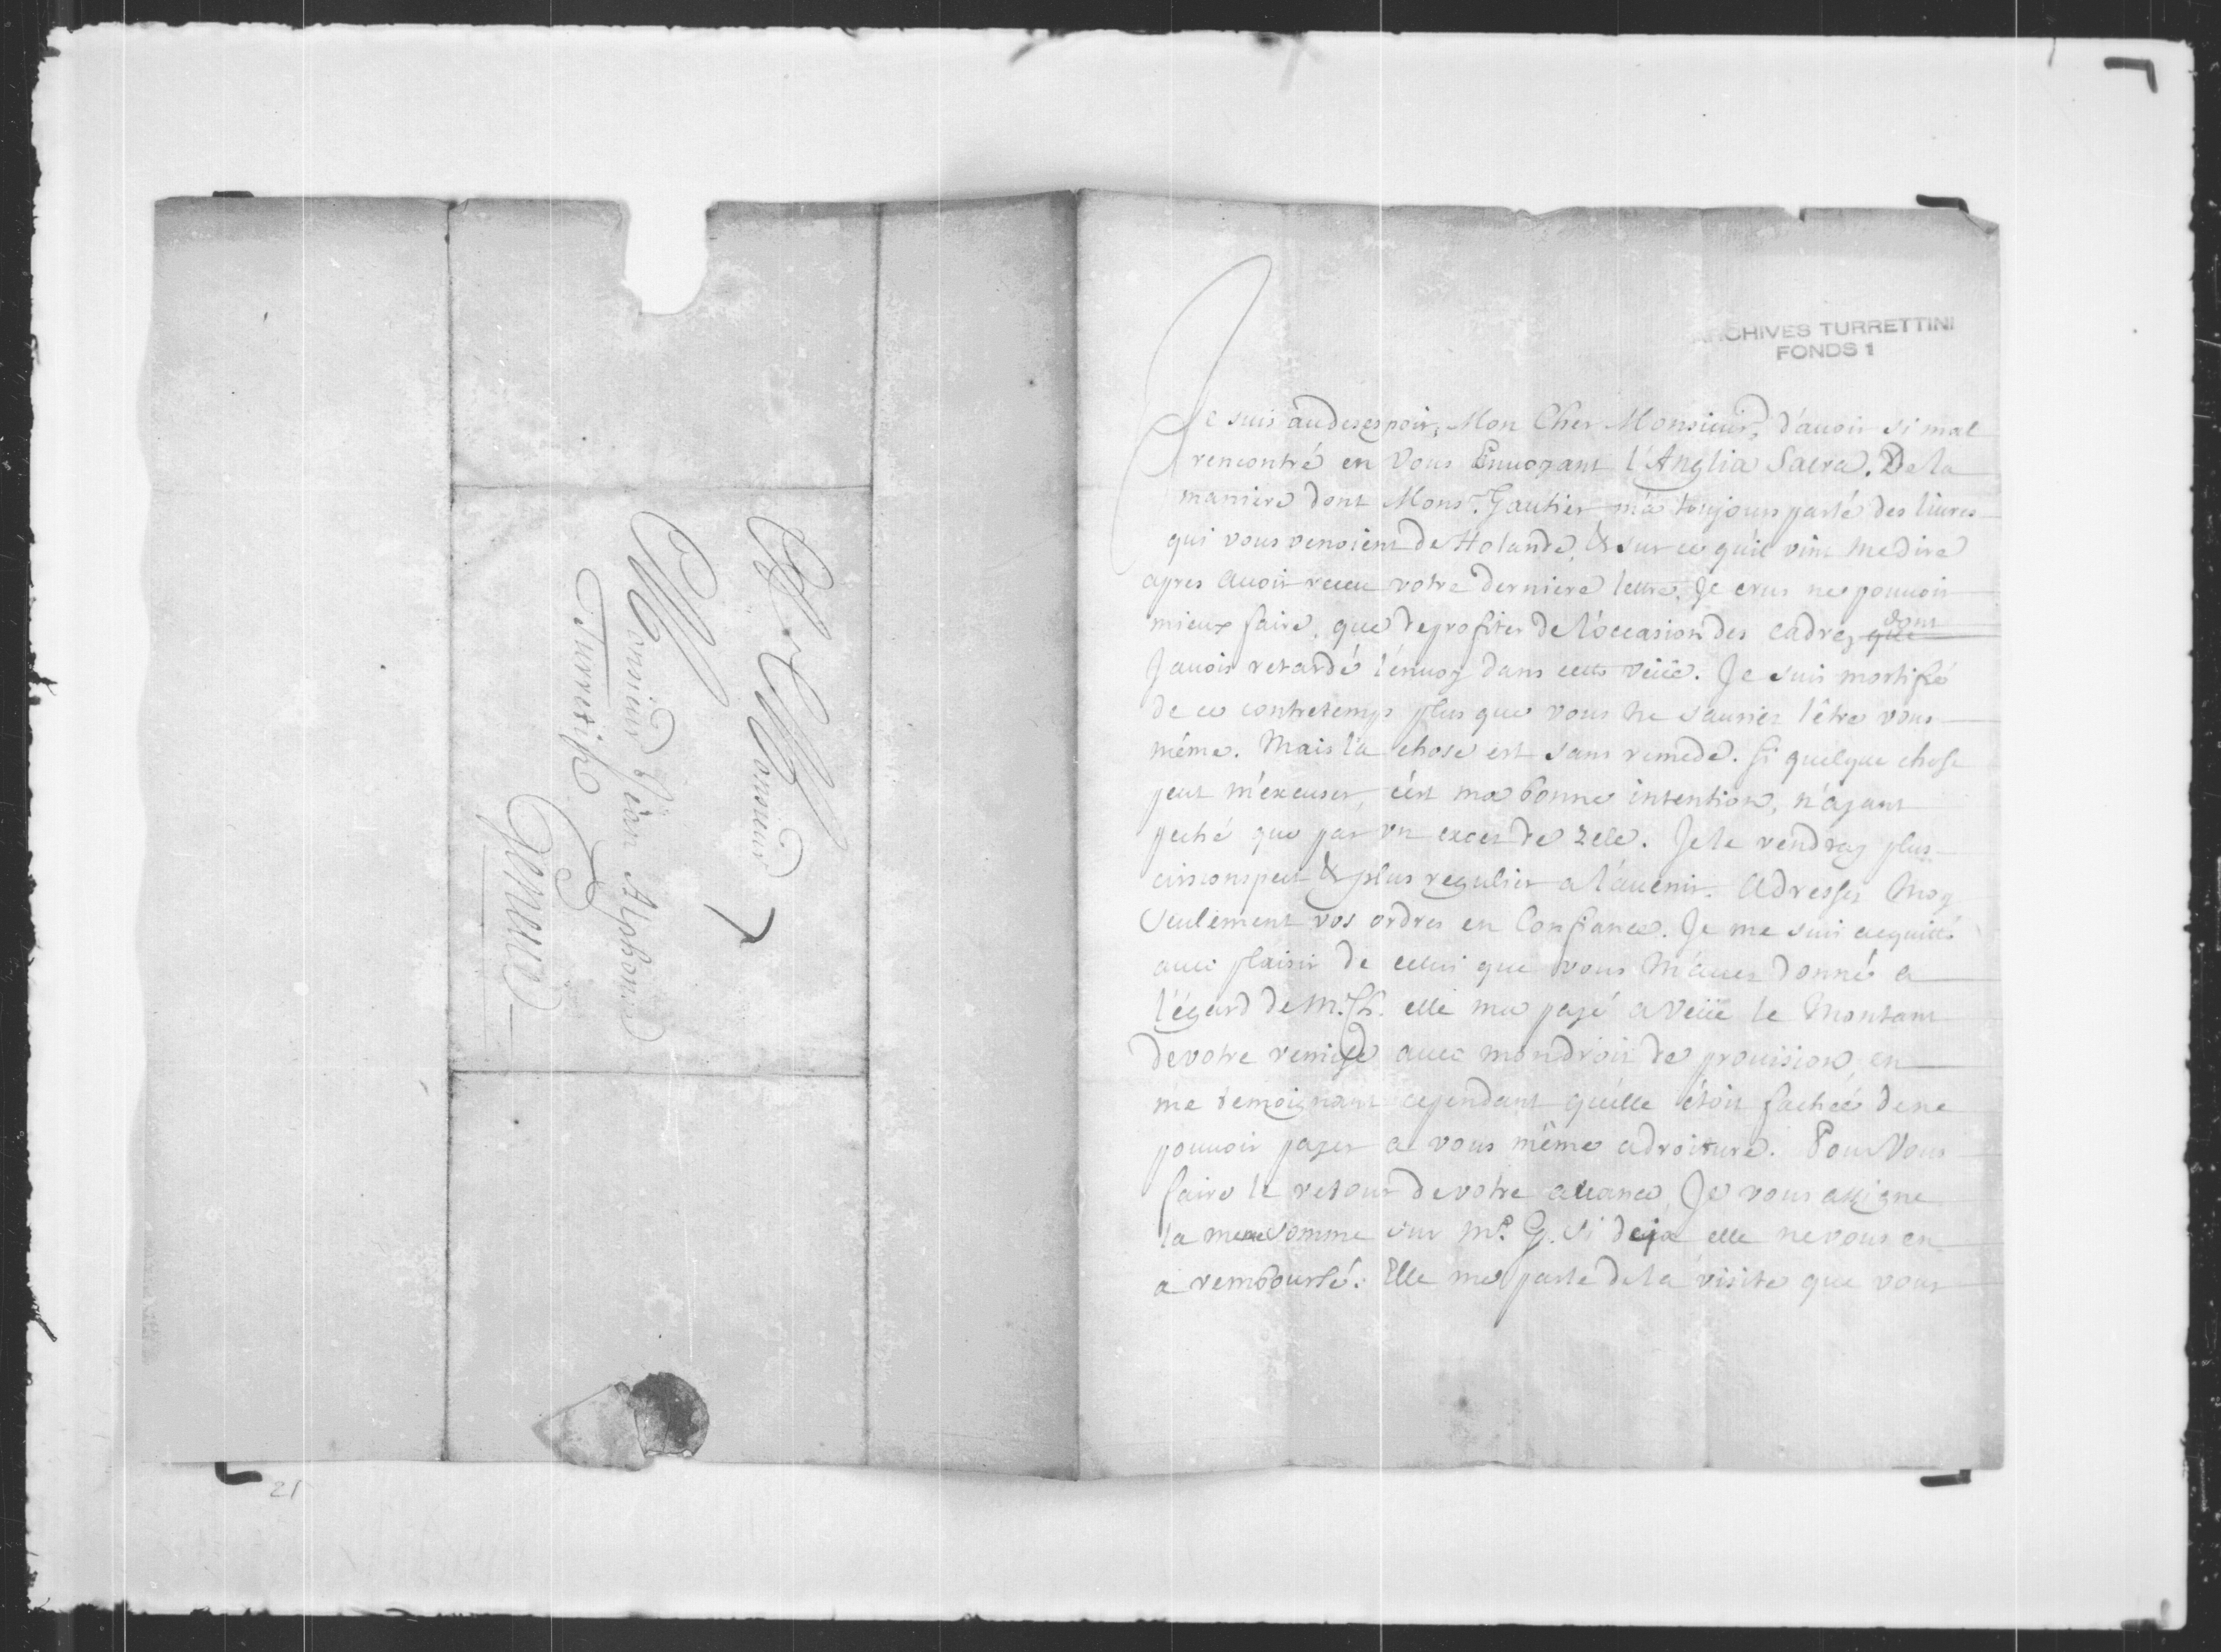 A Monsieur
Monsieur Jean Alphonse
Turretin
Geneve
21
ARCHIVES TURRETTINI
FONDS 1
Je suis au desespoir, Mon Cher Monsieur, d'avoir si mal
rencontré en Vous Envoyant l'Anglia Sacra. De la
maniere dont Mons.r Gautier m'a toujours parlé des livres
qui vous venoient de Holande, & sur ce qu'il vint me dire
apres avoir receu votre derniere lettre, Je crus ne pouvoir
mieux faire, que de profiter de l'occasion des cadrez que dont
J'avois retardé l'envoy dans cette veüe. Je suis mortifié
de ce contretemps plus que vous ne sauriez l'être vous
même. Mais la chose est sans remede. Si quelque chose
peut m'excuser, c'est ma bonne intention, n'ayant
peché que par un exces de zele. Je le rendray plus
circonspect & plus regulier a l'avenir. Adressez Moy
seulement vos ordres en Confiance. Je me suis acquitté
avec plaisir de celui que vous M'avez donné a
l'égard de M. Ch. elle ma payé a Veüe le Montant
de votre remise avec mon droit de provision, en
me temoignant cependant qu'elle étoit fachée de ne
pouvoir payer a vous même a droiture. Pour Vous
faire le retour de votre avance, Je vous assigne
la meme somme sur M.e G. si deja elle ne vous en
a remboursé. Elle me parle de la visite que vous